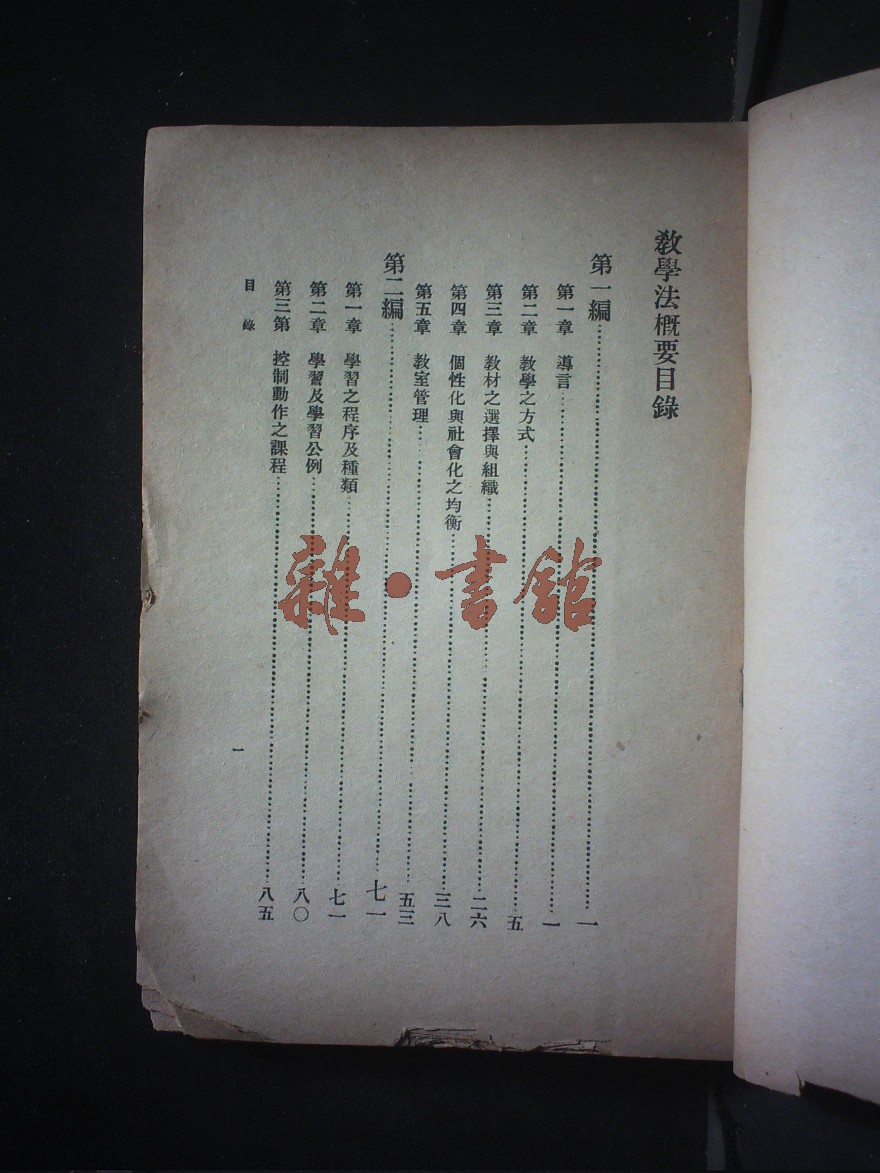 教學法概要目錄
第一編……一
第一章 導言……一
第二章 教學之方式……五
第三章 教材之選擇與組織……二六
第四章 個性化與社會化之均衡……三八
第五章 教室管理……五三
第二編……七一
第一章 學習之程序及種類……七一
第二章 學習及學習公例……八〇
第三第 控制動作之課程……八五
目錄
一
雜·書館